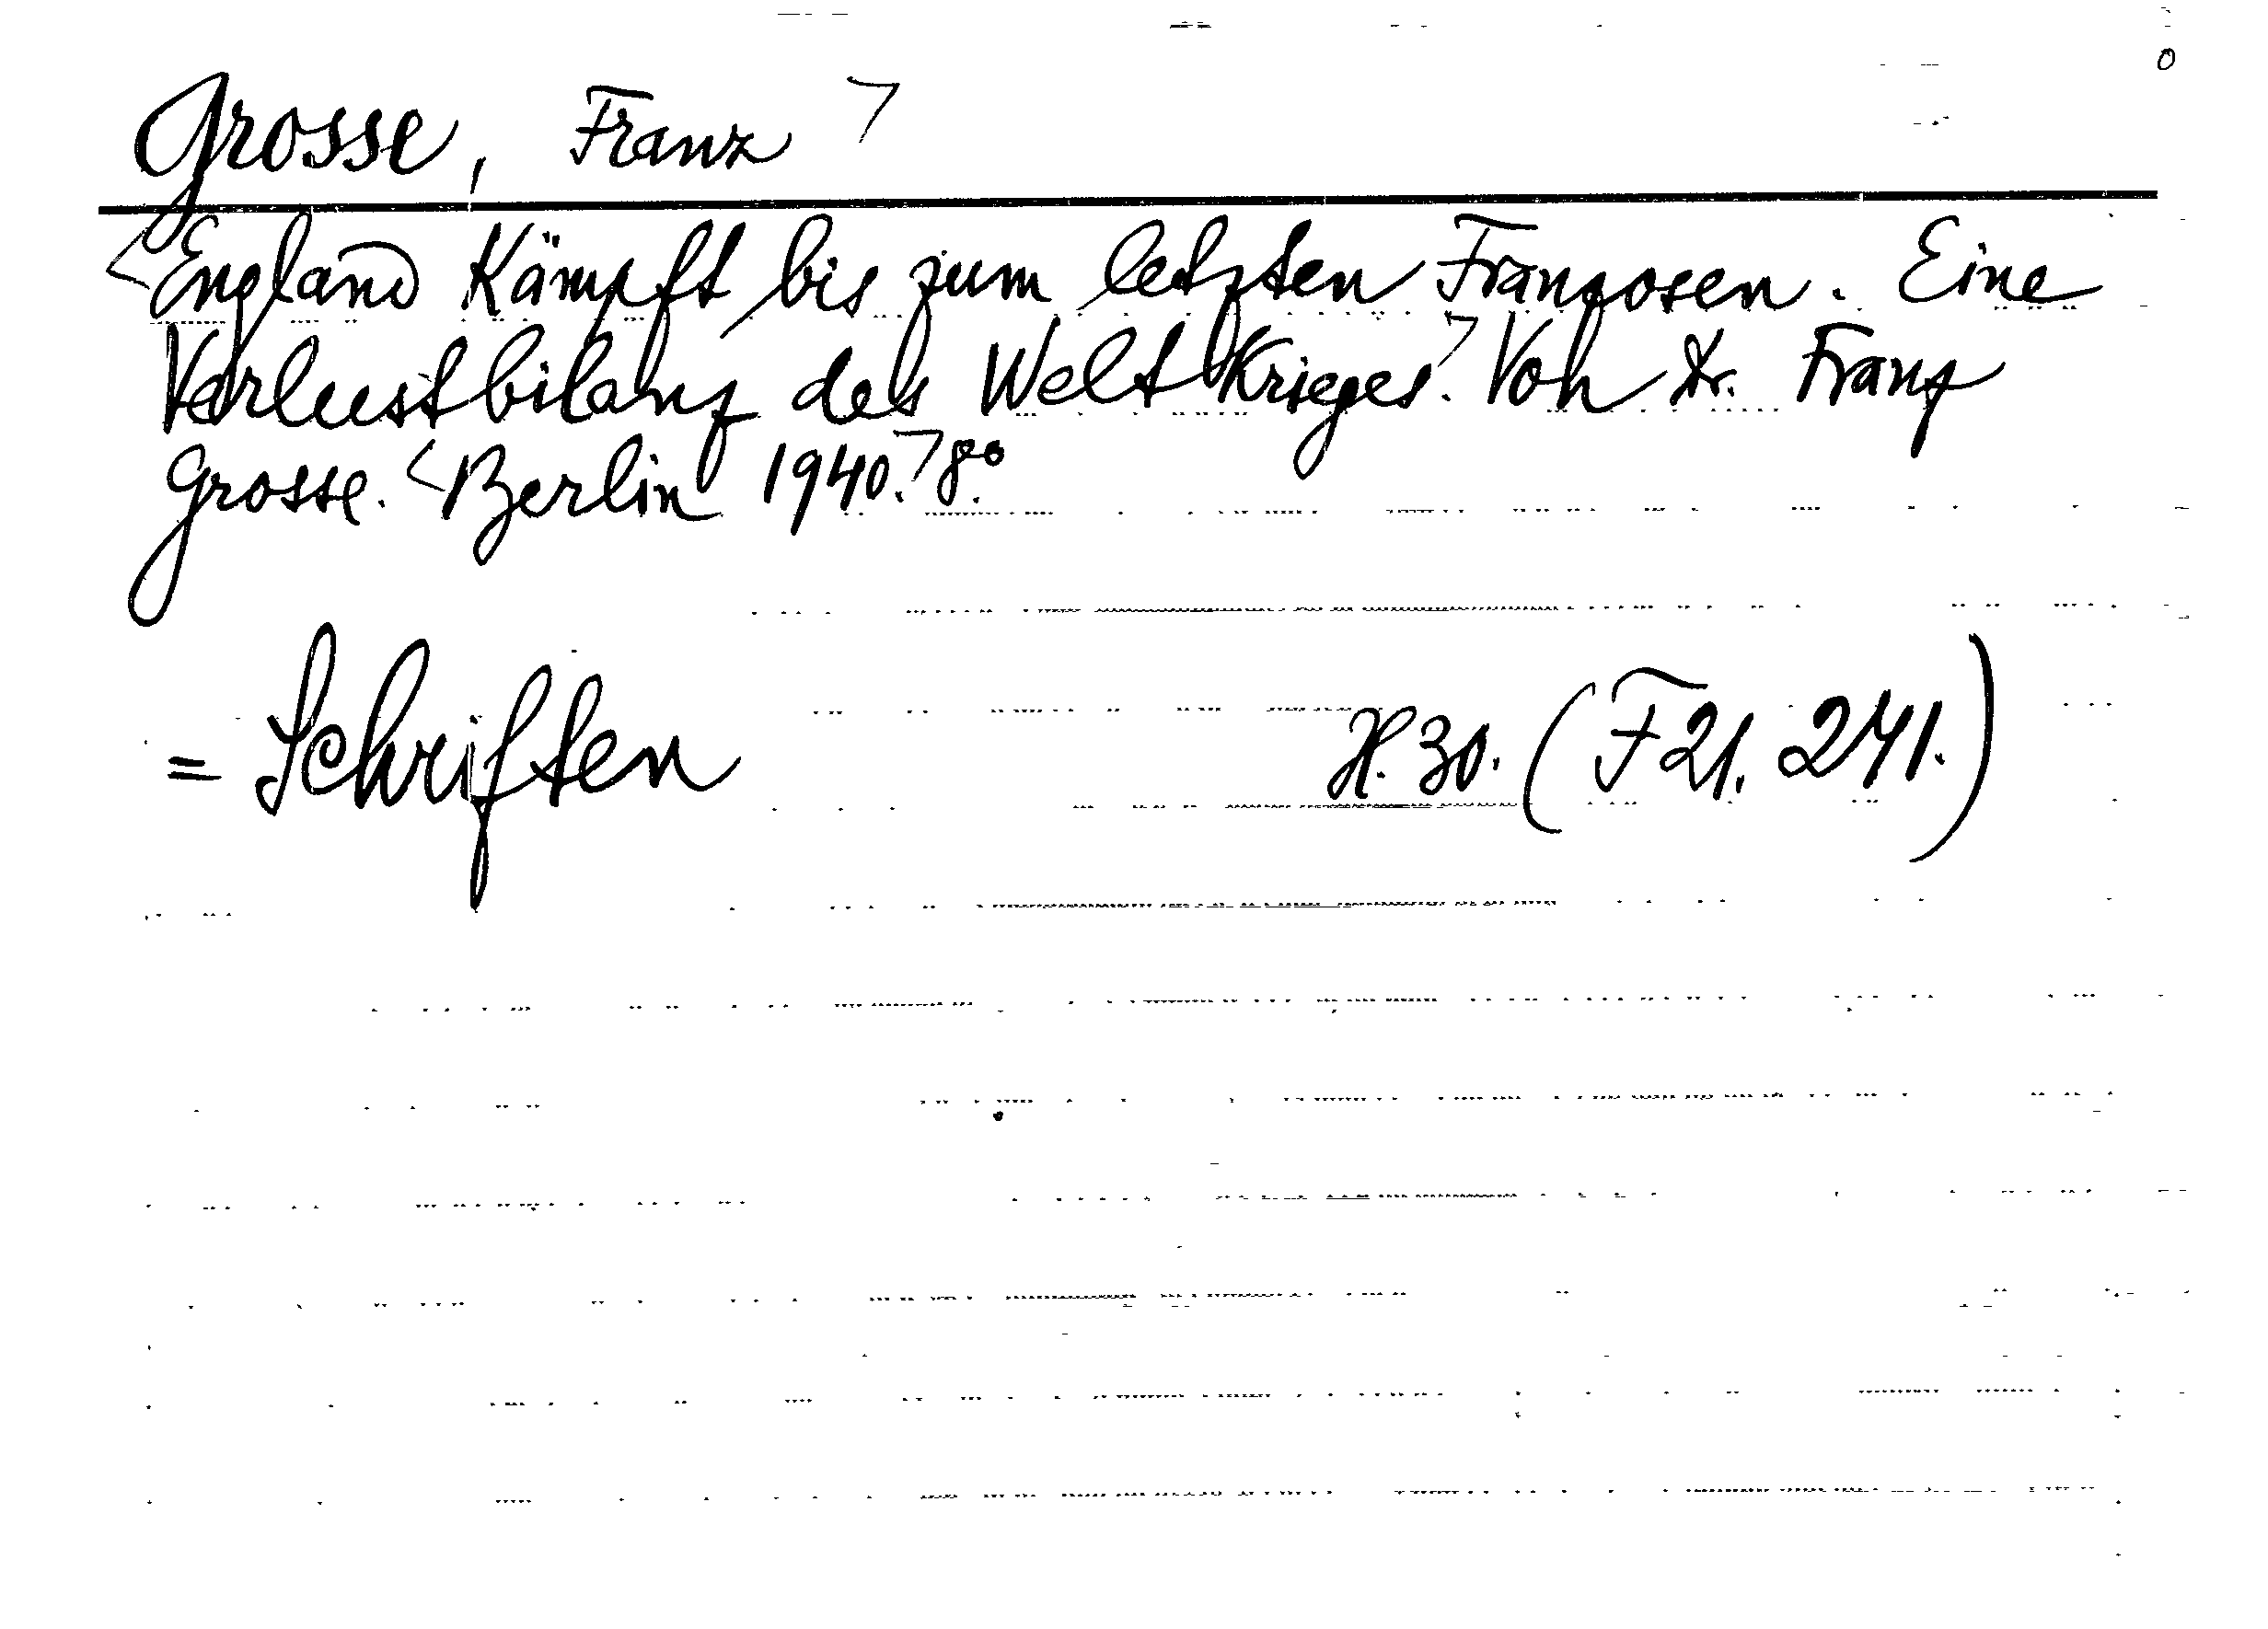 Grosse, Franz ㄱ
<England kämpft bis zum letzten Franzosen. Eine
Verlustbilanz des Weltkrieges.ㄱ Von Dr. Franz
Grosse. <Berlin 1940.ㄱ 8°.
= Schriften H. 30. (F 21. 241.)